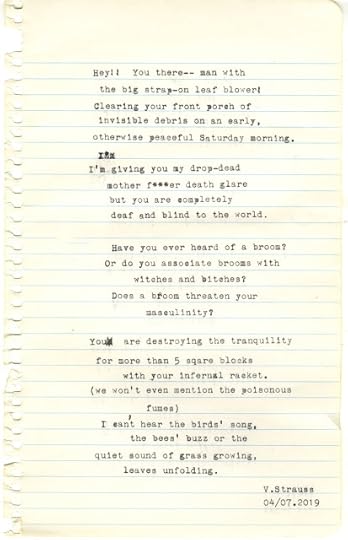 Hey!! You there-- man with
the big strap-on leaf blower!
Clearing your front porch of
invisible debris on an early,
otherwise peaceful Saturday morning.
I'm giving you my drop-dead
mother f***er death glare
but you are completely
deaf and blind to the world.
Have you ever heard of a broom?
Or do you associate brooms with
witches and bitches?
Does a broom threaten your
masculinity?
You are destroying the tranquility
for more than 5 sqare blocks
with your infernal racket.
(we won't even mention the poisonous
fumes)
I can't hear the birds' song,
the bees' buzz or the
quiet sound of grass growing,
leaves unfolding.
V.Strauss
04/07.2019